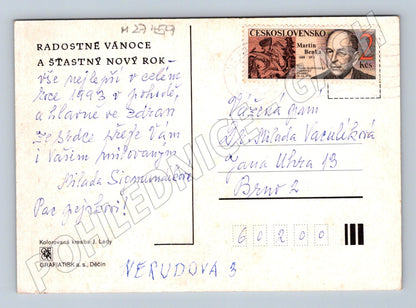 M 27 457
RADOSTNÉ VÁNOCE
A ŠŤASTNÝ NOVÝ ROK
vše nejlepší v celém
roce 1993 v pohodě,
a hlavně ve zdraví
ze srdce přeje Vám
i Vašem milovaným
Milada
Pac a pusu!
Kolorovaná kresba J. Lady
GRAFIATISK a. s., Děčín
ČESKOSLOVENSKO
Martin
Benka
1888 - 1971
2
Kčs
Vážená paní
Dr. Milada Vaculíková
Jana Uhra 13
Brno 2
60200
NERUDOVA 3
POHLEDNICE